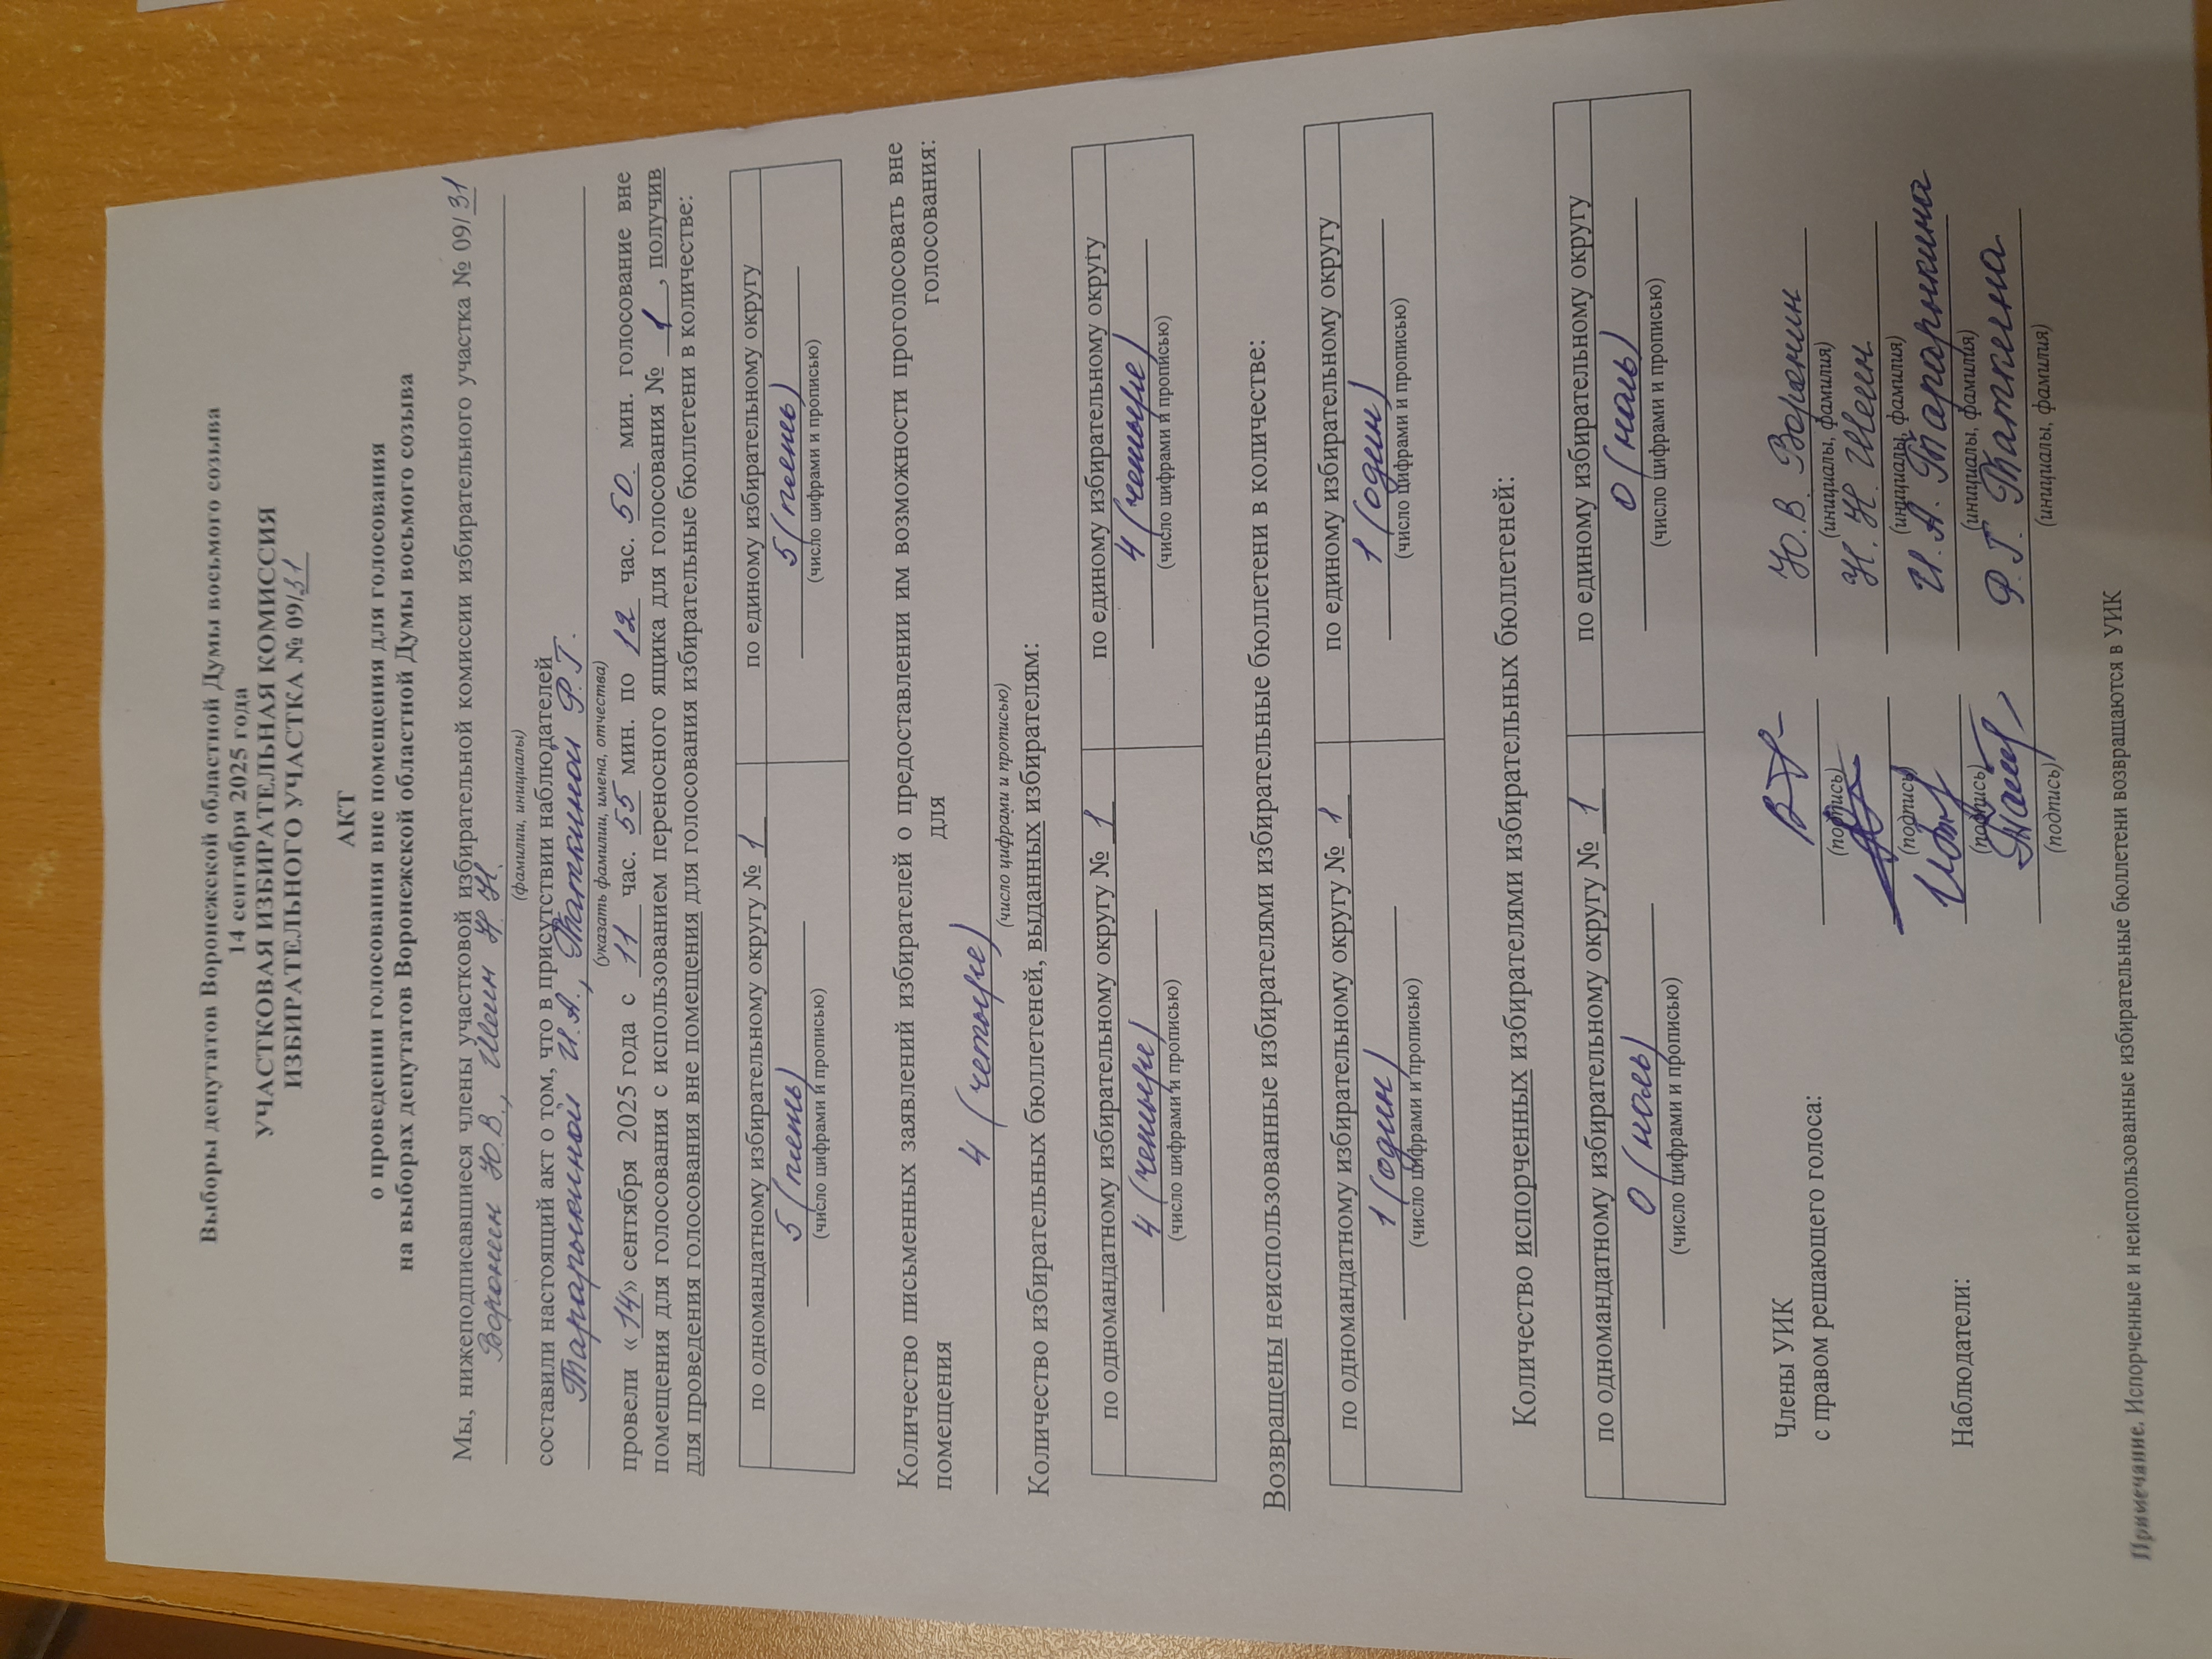 Выборы депутатов Воронежской областной Думы восьмого созыва
14 сентября 2025 года
УЧАСТКОВАЯ ИЗБИРАТЕЛЬНАЯ КОМИССИЯ
ИЗБИРАТЕЛЬНОГО УЧАСТКА № 09/31
АКТ
о проведении голосования вне помещения для голосования
на выборах депутатов Воронежской областной Думы восьмого созыва
Мы, нижеподписавшиеся члены участковой избирательной комиссии избирательного участка № 09/31
Воронин Ю.В., Шеин Н.Н.
(фамилии, инициалы)
составили настоящий акт о том, что в присутствии наблюдателей
И.А., Р.Г.
(указать фамилии, имена, отчества)
провели «14» сентября 2025 года с 11 час. 55 мин. по 12 час. 50 мин. голосование вне
помещения для голосования с использованием переносного ящика для голосования № 1, получив
для проведения голосования вне помещения для голосования избирательные бюллетени в количестве:
по одномандатному избирательному округу № 1 по единому избирательному округу
5 (пять) 5 (пять)
(число цифрами и прописью) (число цифрами и прописью)
Количество письменных заявлений избирателей о предоставлении им возможности проголосовать вне
помещения для голосования:
4 (четыре)
(число цифрами и прописью)
Количество избирательных бюллетеней, выданных избирателям:
по одномандатному избирательному округу № 1 по единому избирательному округу
4 (четыре) 4 (четыре)
(число цифрами и прописью) (число цифрами и прописью)
Возвращены неиспользованные избирателями избирательные бюллетени в количестве:
по одномандатному избирательному округу № 1 по единому избирательному округу
1 (один) 1 (один)
(число цифрами и прописью) (число цифрами и прописью)
Количество испорченных избирателями избирательных бюллетеней:
по одномандатному избирательному округу № 1 по единому избирательному округу
0 (ноль) 0 (ноль)
(число цифрами и прописью) (число цифрами и прописью)
Члены УИК
с правом решающего голоса:
Ю.В. Воронин
(подпись) (инициалы, фамилия)
Н.Н. Шеин
(подпись) (инициалы, фамилия)
Наблюдатели:
И.А.
(подпись) (инициалы, фамилия)
(подпись) (инициалы, фамилия)
Примечание. Испорченные и неиспользованные избирательные бюллетени возвращаются в УИК